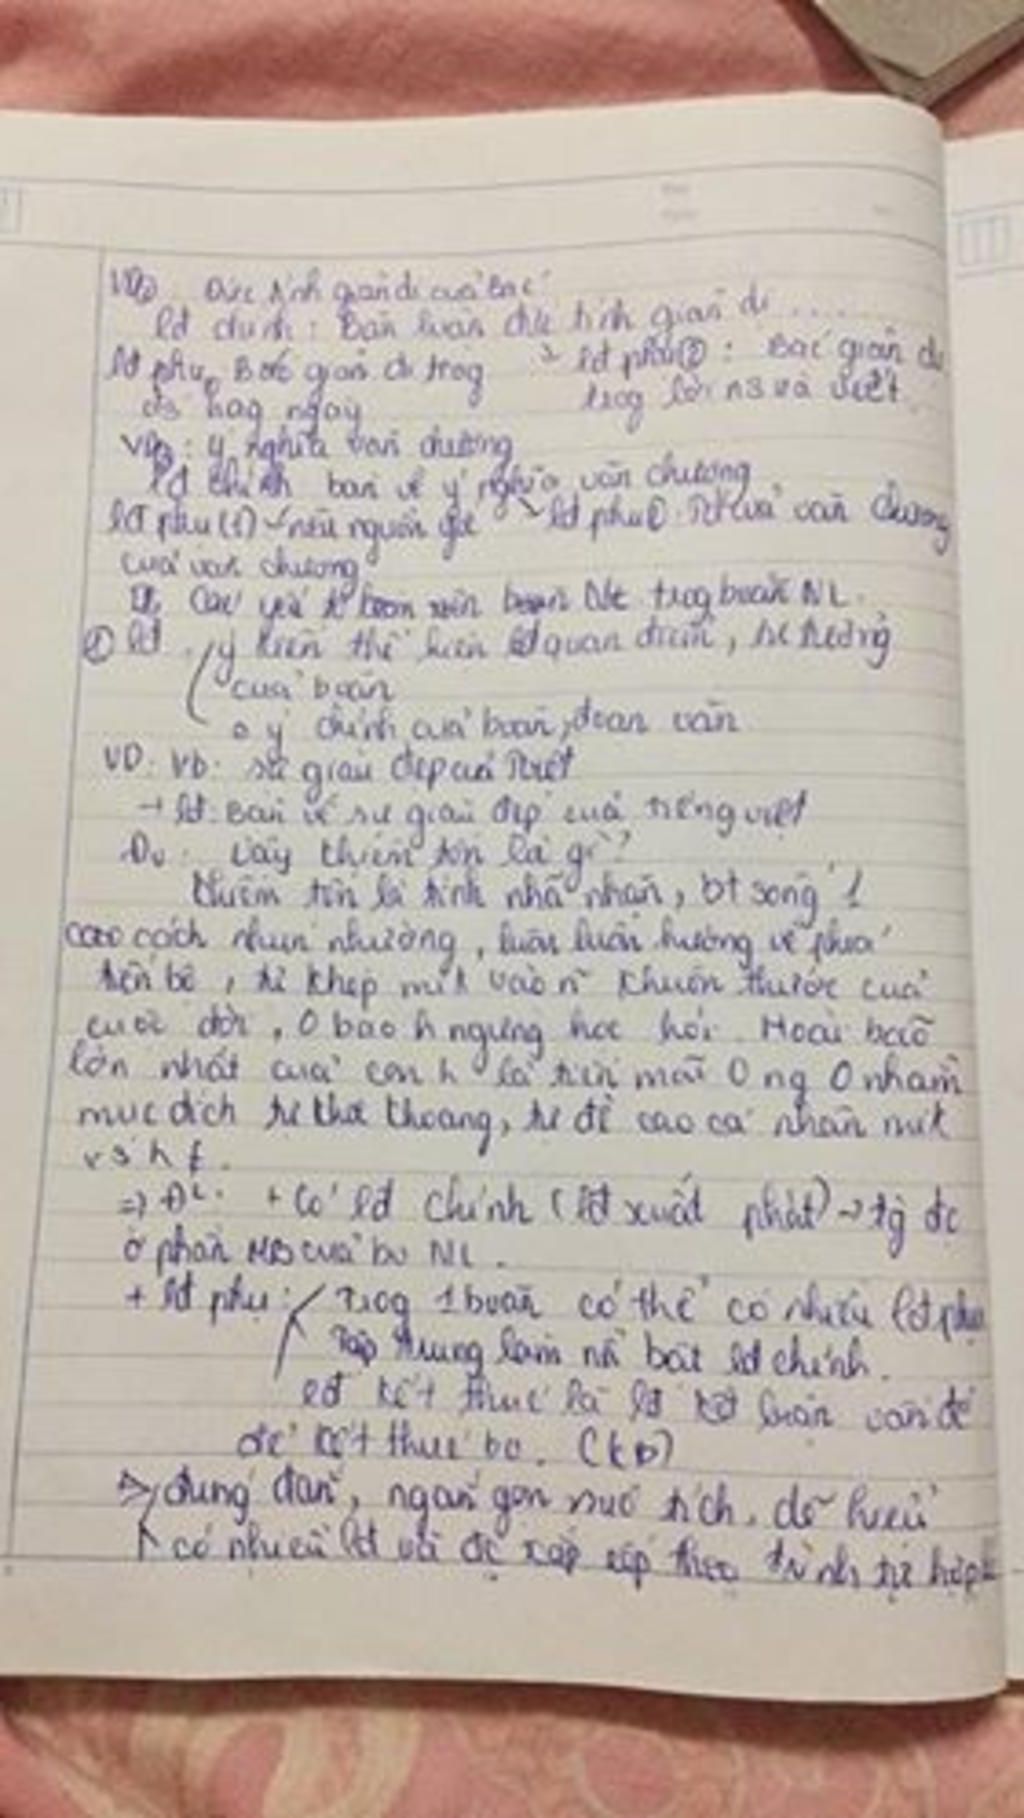 VD2 Đức tính giản dị của Bác
lđ chính: Bàn luận đức tính giản dị ....
lđ phụ 1 Bác giản dị trog lđ phụ 2: Bác giản dị
đs hag ngày trog lời ns và viết.
VD3: Ý nghĩa văn chương
lđ chính bàn về ý nghĩa văn chương
lđ phụ (1) nêu nguồn gốc lđ phụ văn chương
của văn chương
II, Các yếu tố trog boăn NL.
① lđ ý kiến thể hiện quan điểm, tư tưởng
của boăn
o ý chính của boăn, đoạn văn
VD: Vb: sự giàu đẹp của TViệt
→ lđ: Bàn về sự giàu đẹp của tiếng việt
Đv: Vậy khiêm tốn là gì?
Khiêm tốn là tính nhã nhặn, bt sống 1
cao cách nhún nhường, luôn luôn hướng về phía
tiến bộ, tự khép mik vào n~ khuôn thước của
cuộc đời, 0 bao h ngừng học hỏi. Hoài bão
lớn nhất của con h là tiến mãi 0 ng 0 nhằm
mục đích tự khoang, tự đề cao cá nhân mik
vs h t.
=> ĐL: + Có lđ chính (lđ xuất phát) đc
ở phần MB của bv NL.
+ lđ phụ: Trog 1 boăn có thể có nhiều lđ phụ
Tập trung làm nổi bật lđ chính.
lđ kết thúc là lđ kết luận vấn đề
để kết thúc bv. (kb)
=> đúng đắn, ngắn gọn xúc tích, dễ hiểu
có nhiều lđ và đc sắp xếp theo trình tự hợp